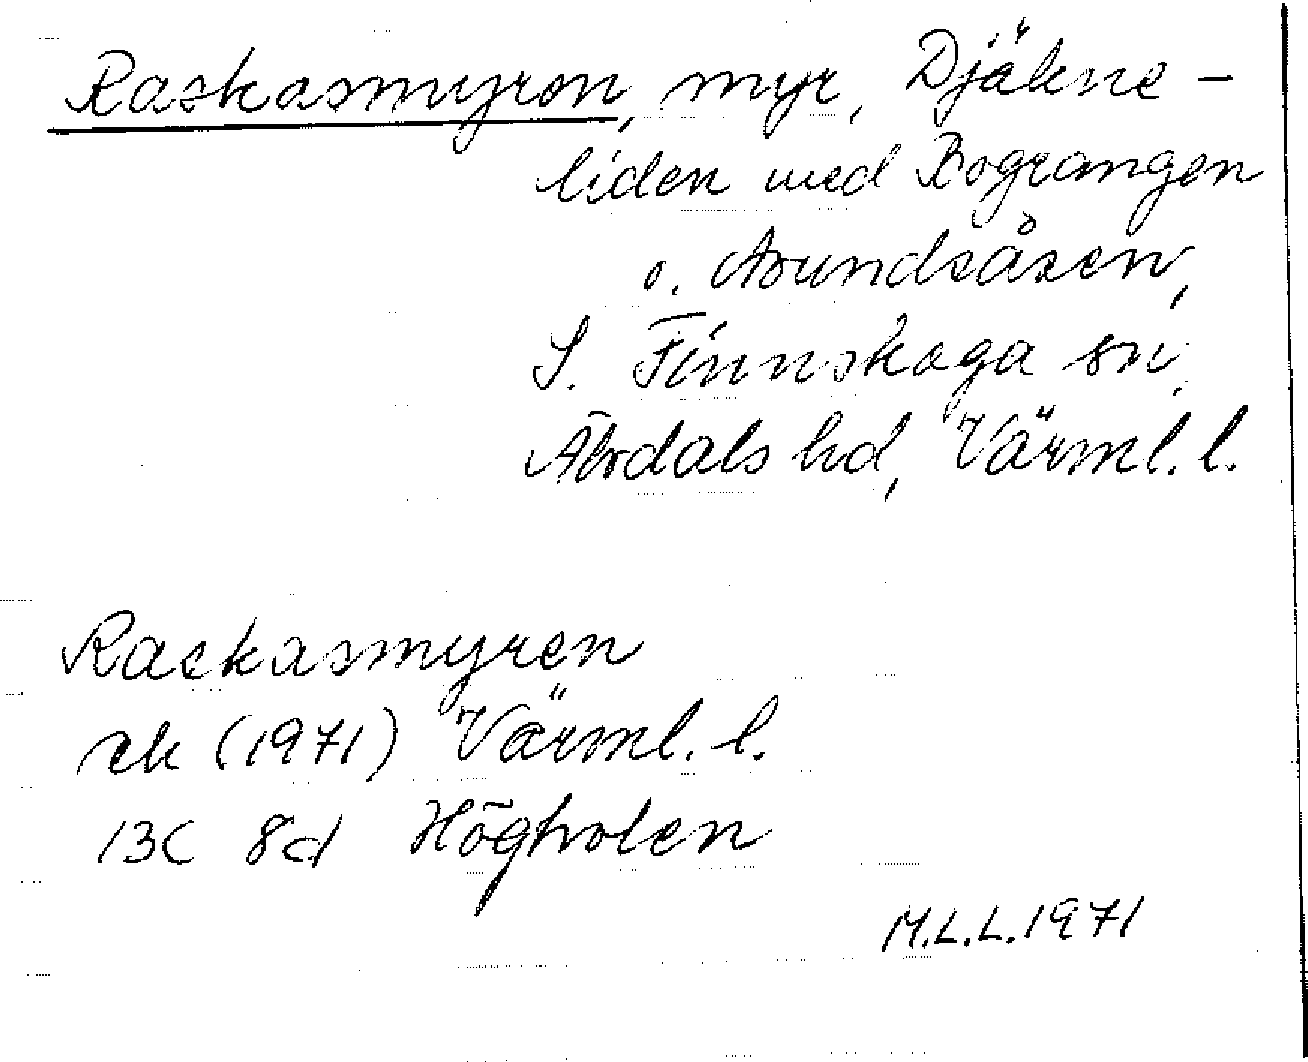 Raskasmyren, myr, Djäkne-
liden med Bograngen
o. Avundsåsen,
S. Finnskoga sn,
Älvdals hd, Värml. l.
Raskasmyren
ek (1971) Värml. l.
13C 8d Högholen
M.L.L. 1971